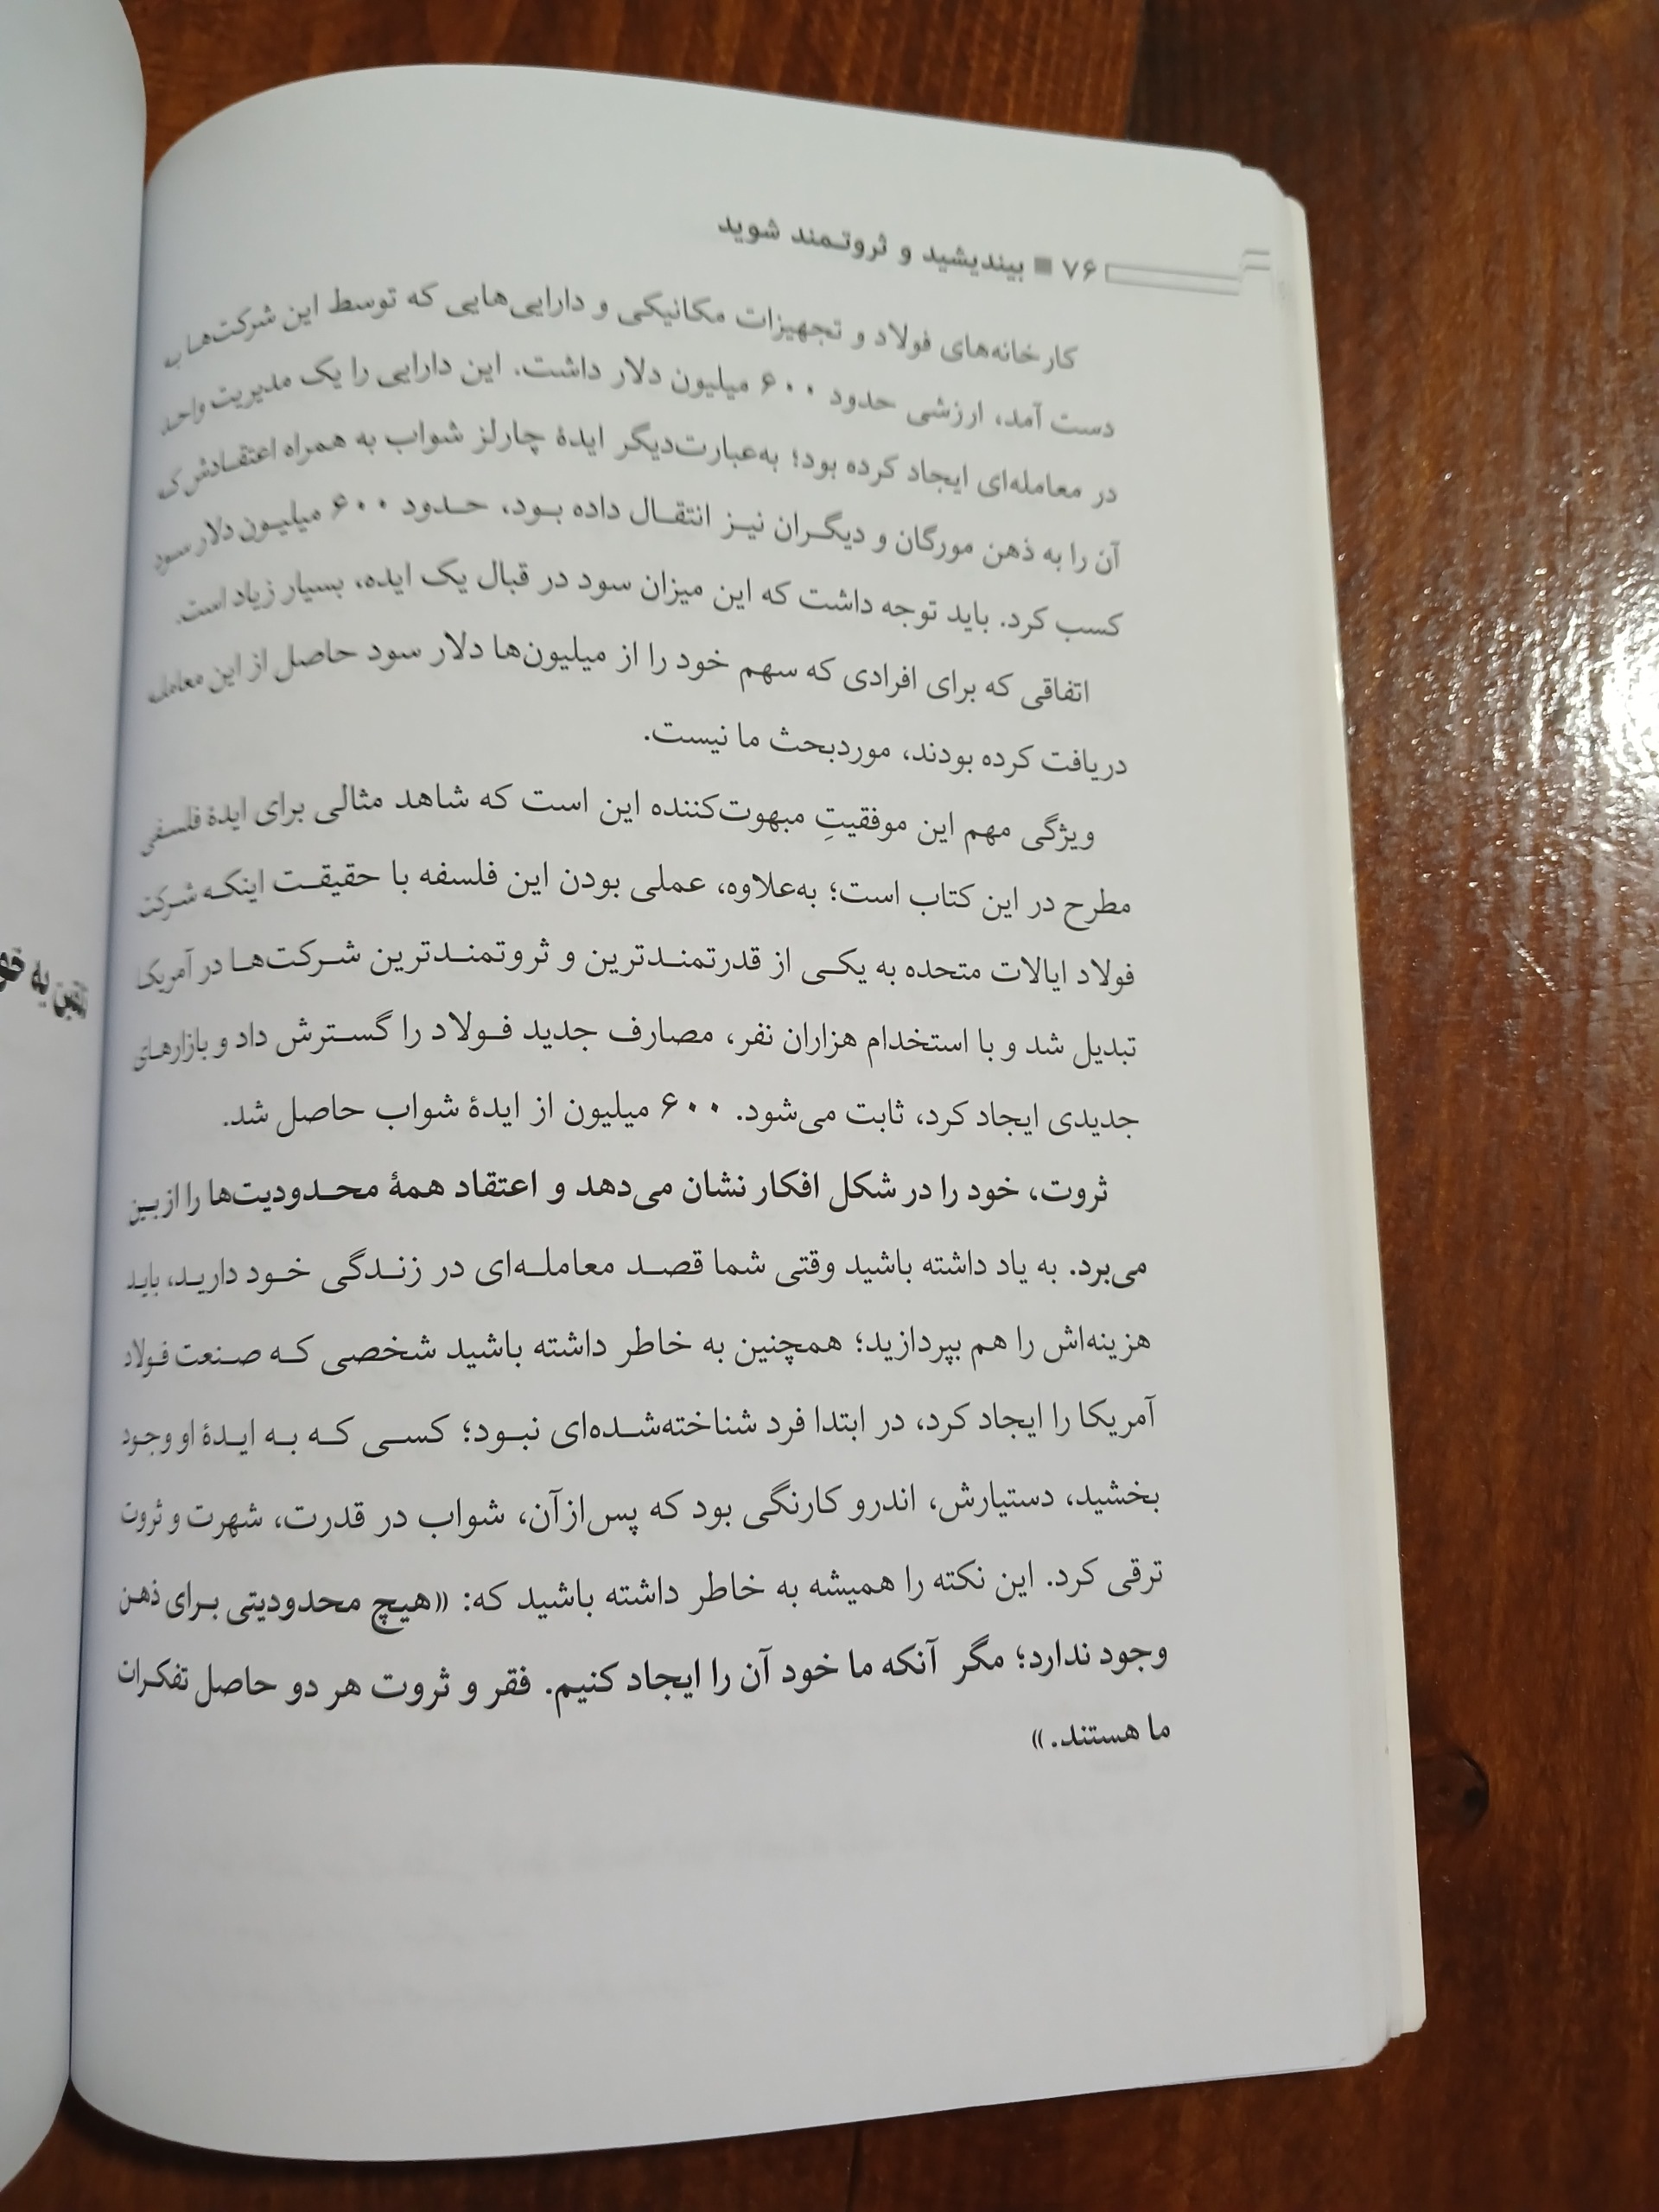 ۷۶ ■ بیندیشید و ثروتمند شوید
کارخانه‌های فولاد و تجهیزات مکانیکی و دارایی‌هایی که توسط این شرکت‌ها ب
دست آمد، ارزشی حدود ۶۰۰ میلیون دلار داشت. این دارایی را یک مدیریت واحد
در معامله‌ای ایجاد کرده بود؛ به‌عبارت‌دیگر ایدهٔ چارلز شواب به همراه اعتقادش ک
آن را به ذهن مورگان و دیگران نیز انتقال داده بود، حدود ۶۰۰ میلیون دلار سود
کسب کرد. باید توجه داشت که این میزان سود در قبال یک ایده، بسیار زیاد است.
اتفاقی که برای افرادی که سهم خود را از میلیون‌ها دلار سود حاصل از این معامله
دریافت کرده بودند، موردبحث ما نیست.
ویژگی مهم این موفقیتِ مبهوت‌کننده این است که شاهد مثالی برای ایدهٔ فلسفی
مطرح در این کتاب است؛ به‌علاوه، عملی بودن این فلسفه با حقیقت اینکه شرکت
فولاد ایالات متحده به یکی از قدرتمندترین و ثروتمندترین شرکت‌ها در آمریکا
تبدیل شد و با استخدام هزاران نفر، مصارف جدید فولاد را گسترش داد و بازارهای
جدیدی ایجاد کرد، ثابت می‌شود. ۶۰۰ میلیون از ایدهٔ شواب حاصل شد.
ثروت، خود را در شکل افکار نشان می‌دهد و اعتقاد همهٔ محدودیت‌ها را از بین
می‌برد. به یاد داشته باشید وقتی شما قصد معامله‌ای در زندگی خود دارید، باید
هزینه‌اش را هم بپردازید؛ همچنین به خاطر داشته باشید شخصی که صنعت فولاد
آمریکا را ایجاد کرد، در ابتدا فرد شناخته‌شده‌ای نبود؛ کسی که به ایدهٔ او وجود
بخشید، دستیارش، اندرو کارنگی بود که پس‌ازآن، شواب در قدرت، شهرت و ثروت
ترقی کرد. این نکته را همیشه به خاطر داشته باشید که: «هیچ محدودیتی برای ذهن
وجود ندارد؛ مگر آنکه ما خود آن را ایجاد کنیم. فقر و ثروت هر دو حاصل تفکرات
ما هستند.»